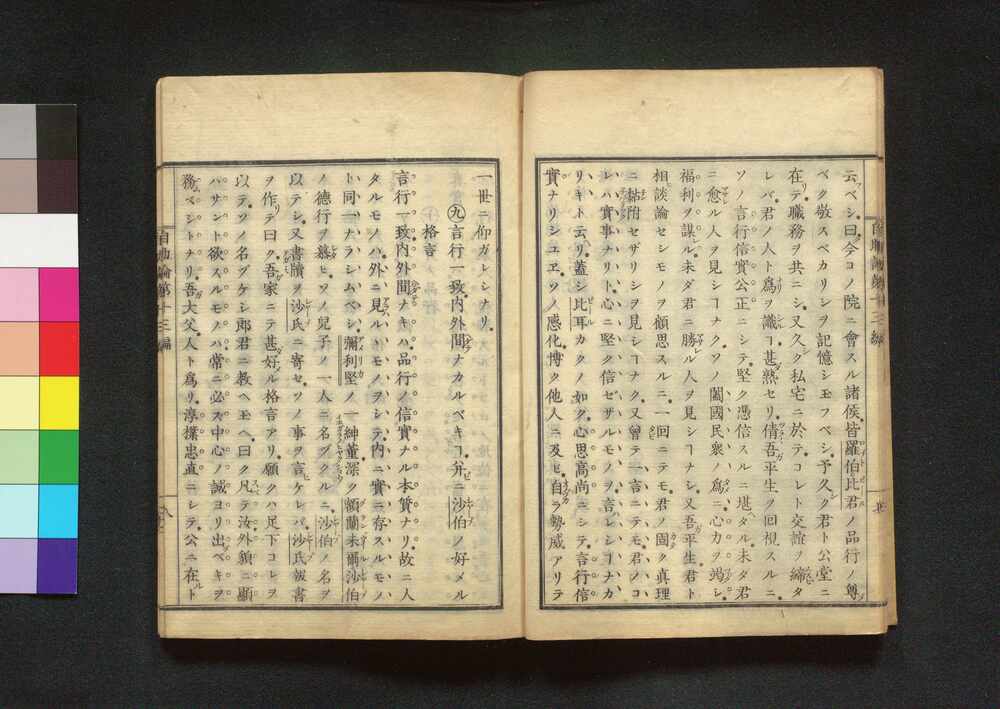 云ベシ曰今コノ院ニ會スル諸侯皆羅伯比君ノ品行ノ尊
ベク敬スベカリシヲ記憶シモフベシ予久ク君ト公堂ニ
在テ職務ヲ共ニシ又久ク私宅ニ於テコレト交誼ヲ締タ
レバ君ノ人ト爲ヲ識ヿ甚熟セリ倩吾平生ヲ回視スルニ
ソノ言行信實公正ニシテ堅ク憑信スルニ堪タル未タ君
ニ愈ル人ヲ見シヿナクソノ闔國民衆ノ爲ニ心力ヲ竭シ
福利ヲ謀ル未ダ君ニ勝ル人ヲ見シヿナシ又吾平生君ト
相談論セシモノヲ頋思スルニ一回ニテモ君ノ固ク真理
ニ黏附セザリシヲ見シヿナク又曾テ一言ニテモ君ノコ
レハ實事ナリト心ニ堅ク信ゼザルモノヲ言レシヿナカ
リキト云リ蓋シ比耳カクノ如ク心思高尚ニシテ言行信
實ナリシユヱソノ感化博ク他人ニ及ビ自ラ勢威アリテ
一世ニ仰ガレシナリ
㊈言行一致内外間ナカルベキヿ并ニ沙伯ノ好メル
格言
言行一致内外間ナキハ品行ノ信實ナル本質ナリ故ニ人
タルモノハ外ニ見ルヽトモノヲシテ内ニ實ニ存スルモノ
ト同一ナラシムベシ彌利堅ノ一紳董深ク額蘭未爾沙伯
ノ德行ヲ慕ヒソノ兒子ノ一人ニ名ヅクルニ沙伯ノ名ヲ
以テシ又書牘ヲ沙氏ニ寄セソノ事ヲ言ケレバ沙氏報書
ヲ作テ曰ク吾家ニテ甚好メル格言アリ願クハ足下コレヲ
以テソノ名ヅケシ郎君ニ教ヘモヘ曰ク凡テ汝外貌ニ顯
ハサント欲スルモノハ常ニ必ス中心ノ誠ヨリ出ベキヲ
務ベシトナリ吾大父人ト爲リ淳樸忠直ニシテ公ニ在ルト
自助論第十三編
自助論第十三編